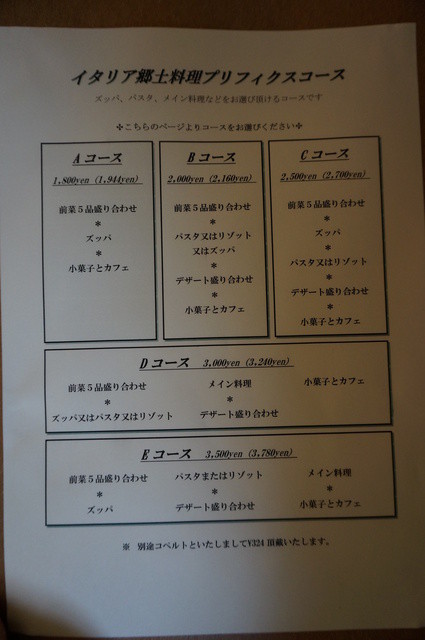 イタリア郷土料理プリフィクスコース
ズッパ、パスタ、メイン料理などをお選び頂けるコースです
✣こちらのページよりコースをお選びください✣
A コース
1,800yen (1,944yen)
前菜５品盛り合わせ
＊
ズッパ
＊
小菓子とカフェ
B コース
2,000yen (2,160yen)
前菜５品盛り合わせ
＊
パスタ又はリゾット
又はズッパ
＊
デザート盛り合わせ
＊
小菓子とカフェ
C コース
2,500yen (2,700yen)
前菜５品盛り合わせ
＊
ズッパ
＊
パスタ又はリゾット
＊
デザート盛り合わせ
＊
小菓子とカフェ
D コース 3,000yen (3,240yen)
前菜５品盛り合わせ
＊
ズッパ又はパスタ又はリゾット
メイン料理
＊
デザート盛り合わせ
小菓子とカフェ
E コース 3,500yen (3,780yen)
前菜５品盛り合わせ
＊
ズッパ
パスタまたはリゾット
＊
デザート盛り合わせ
メイン料理
＊
小菓子とカフェ
※ 別途コペルトといたしまして¥324 頂戴いたします。